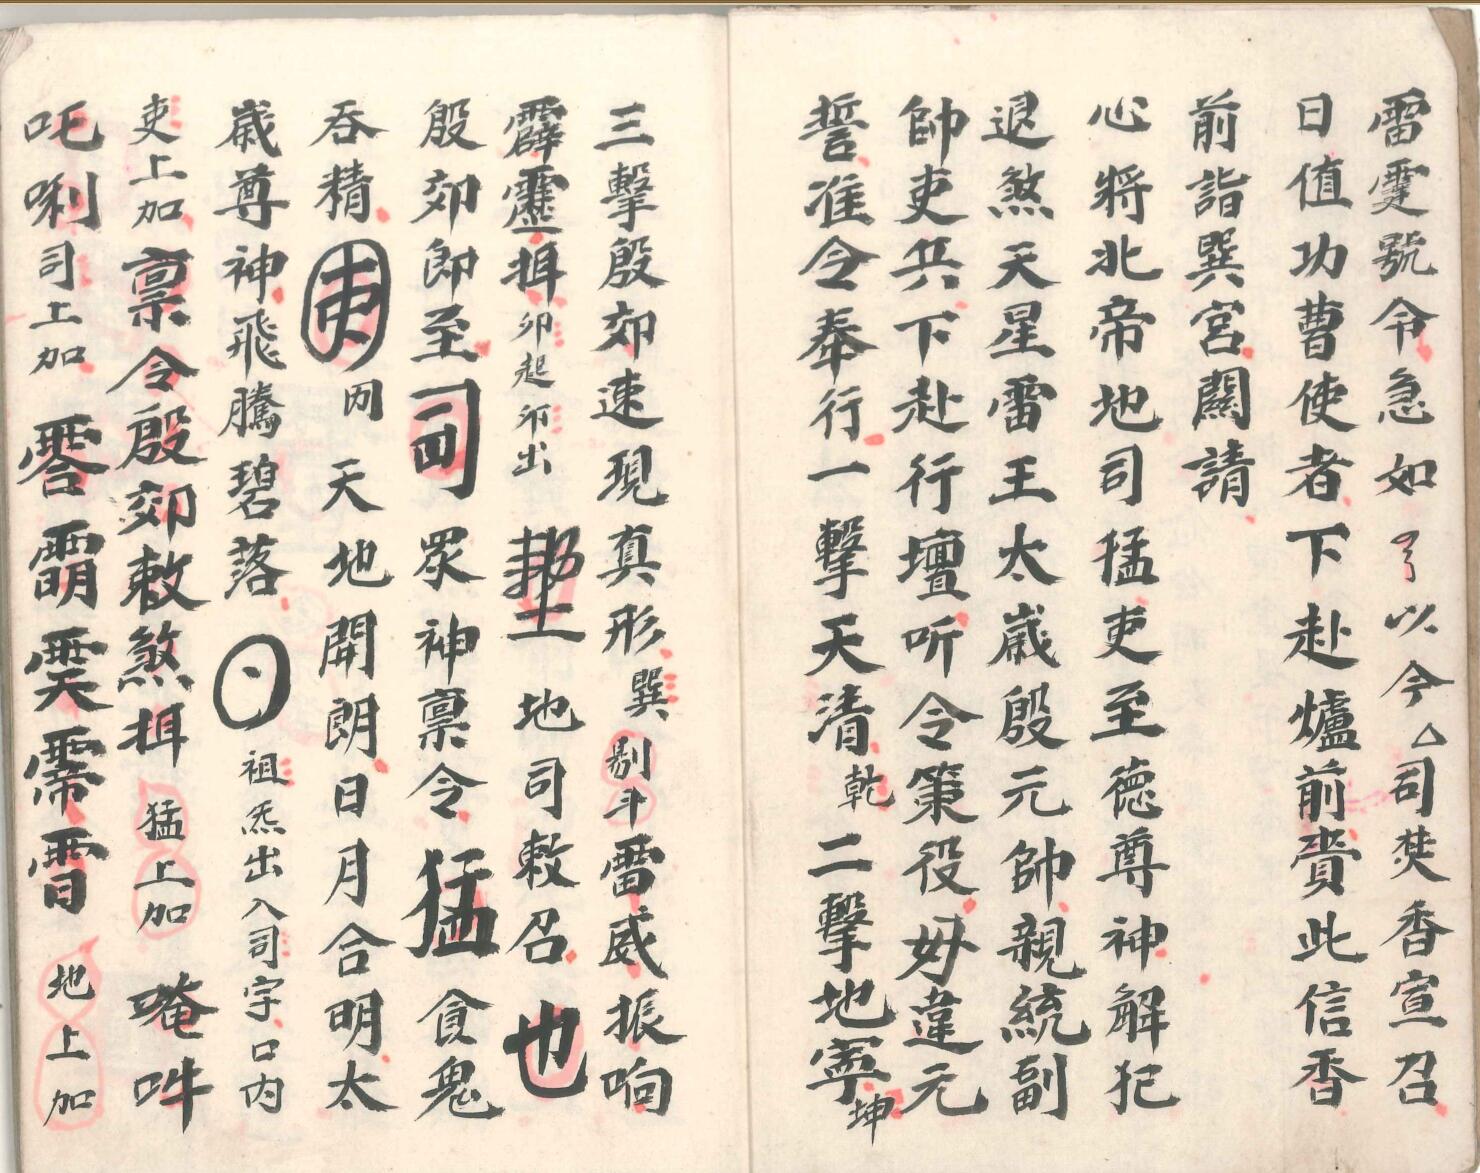 雷霆號令急如了了以今△司焚香宣召
日值功曹使者下赴爐前賫此信香
前詣巽宮闕請
心將北帝地司猛吏至德尊神解犯
退煞天星雷王太歲殷元帥親統副
帥吏兵下赴行壇听令策役毋違元
誓准令奉行一擊天清乾二擊地寧坤
三擊殷郊速現真形巽剔斗雷威振响
霹靂揖卯起卯出 地司敕召也
殷郊郎至司眾神禀令猛食鬼
吞精吏內天地開朗日月合明太
歲尊神飛騰碧落祖炁出入司字口内
吏上加禀令殷郊敕煞揖猛上加唵吽
吒唎司上加 地上加